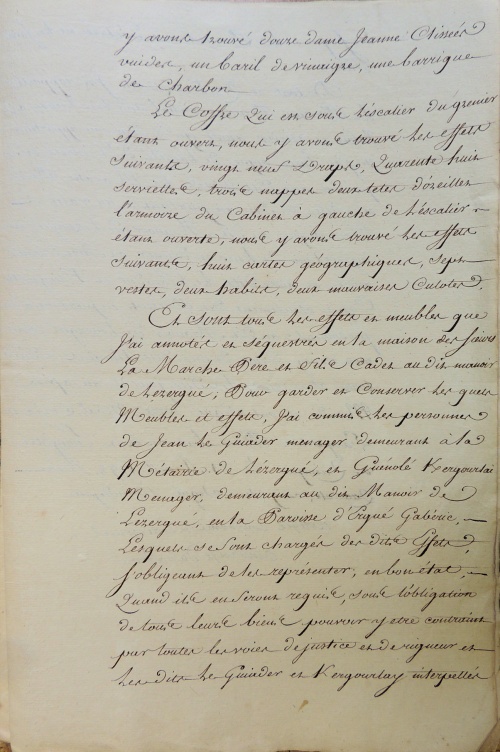 y avons trouvé douze dame Jeanne Clissées
vuides, un baril de vinaigre, une barrique
de charbon
Le Coffre qui est sous l'éscalier du grenier
étant ouvert, nous y avons trouvé les effets
suivants, vingt neuf Draps, Quarente huit
serviettes, trois nappes deux tetes d'oreillers
l'armoire du Cabinet à gauche de l'éscalier
étant ouverte, nous y avons trouvé les effets
suivants, huit cartes géographiques, sept
vestes, deux habits, deux mauvaises Culotes.
Et sont tous les effets et meubles que
J'ai annotés et séquestrés en la maison des Sieurs
La Marche Pere et fils Cadet au dit manoir
de Lezergué, Pour garder et Conserver les quels
Meubles et effets, J'ai commis les personnes
de Jean Le Guiader menager demeurant à la
Métairie de Lézergué, et Guénolé Kergourlai
Menager, demeurant au dit Manoir de
Lezergué, en la Paroisse d'Ergué Gabéric,
Lesquels se sont chargés des dits Effets,
s'obligeant de les représenter, en bon état,
Quand ils en seront requis, sous l'obligation
de tous leurs biens pouvoir y etre contraint
par toutes les voies de justice et de rigueur et
les dits Le Guiader et Kergourlay interpellés